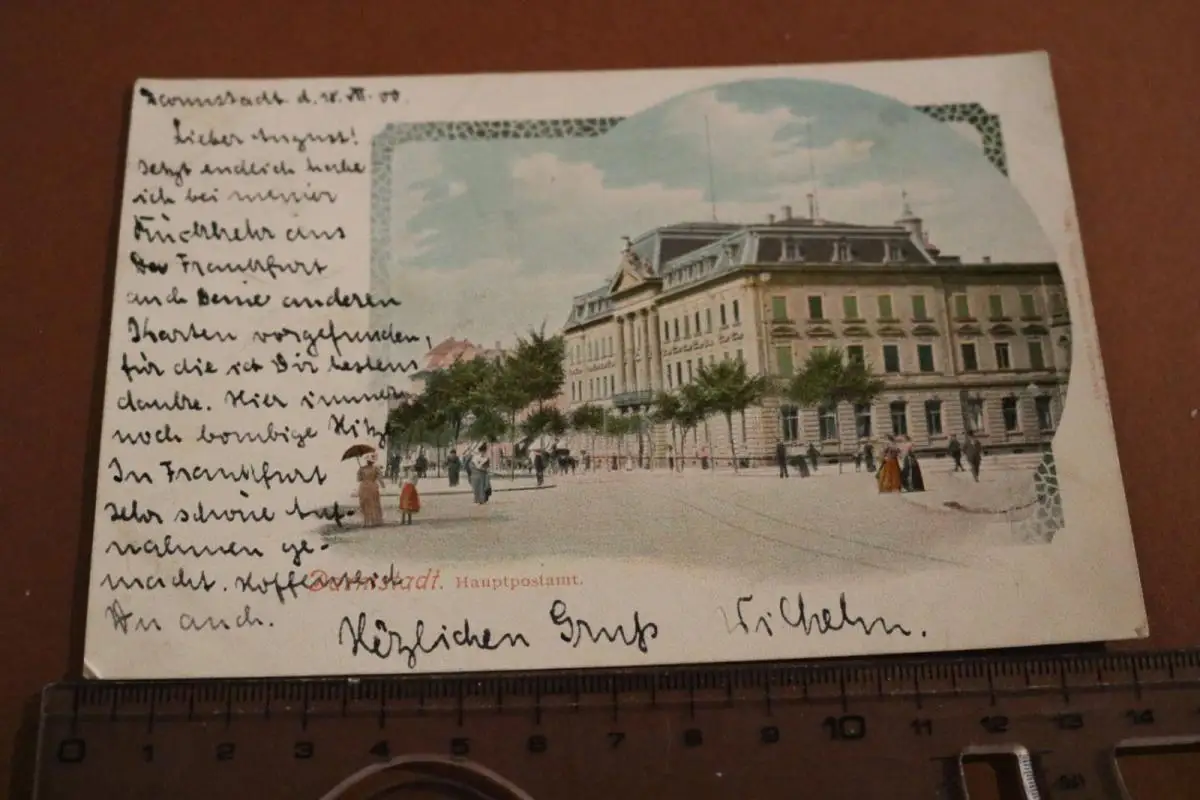 Darmstadt d. 18. VII. 00.
Lieber August!
Jetzt endlich habe
ich bei meiner
Rückkehr aus
Frankfurt
auch Deine anderen
Karten vorgefunden,
für die ich Dir bestens
danke. Hier immer
noch bombige Hitze
In Frankfurt
sehr schöne Auf-
nahmen ge-
macht. Hoffentlich
Du auch.
Darmstadt. Hauptpostamt.
Herzlichen Gruß Wilhelm.
0 1 2 3 4 5 6 7 8 9 10 11 12 13 14